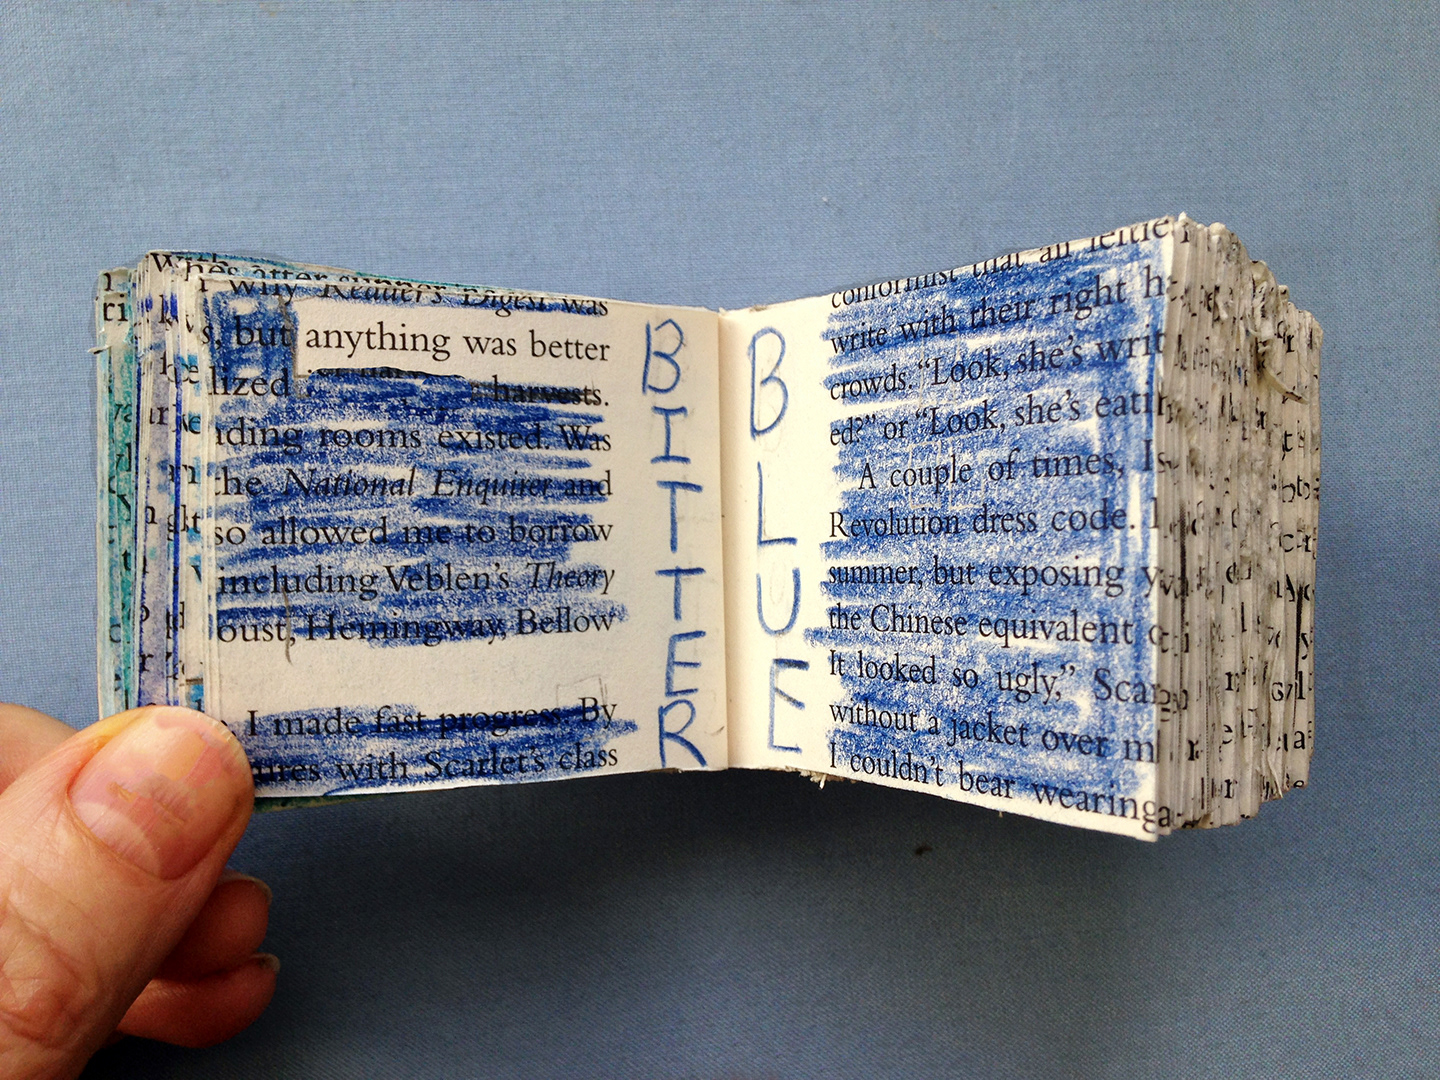 why Reader's Digest was
s, but anything was better
lized harvests.
ding rooms existed. Was
the National Enquirer and
so allowed me to borrow
including Veblen's Theory
oust, Hemingway, Bellow
I made fast progress. By
ures with Scarlet's class
BITTER
BLUE
conformist that all leftie
write with their right h
crowds. "Look, she's writ
ed?" or "Look, she's eatin
A couple of times, I
Revolution dress code. I
summer, but exposing y
the Chinese equivalent
It looked so ugly," Scar
without a jacket over m
I couldn't bear wearing